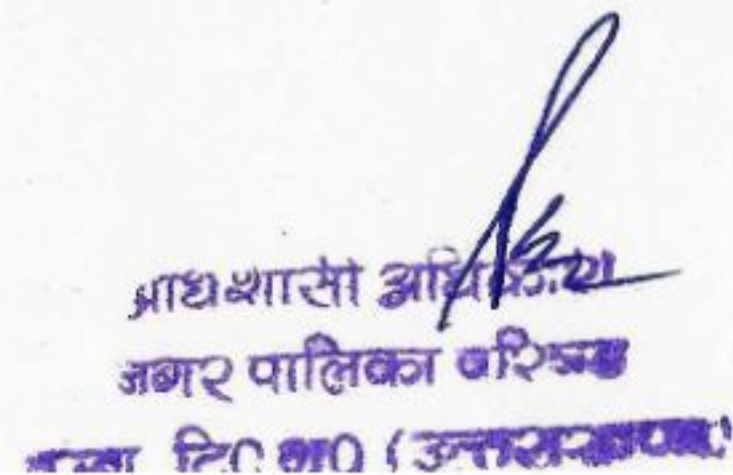 अधिशासी अधिकारी
नगर पालिका परिषद
टि0 ग0 (उत्तराखण्ड)